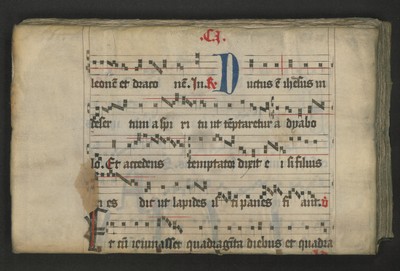 .CI.
leonē et draco nē. In. R. Ductus ē ihesus in
deser tum a spi ri tu ut tēptaretur a dyabo
lo. Et accedens temptator dixit e i si filius
dei es dic ut lapides is ti panes fi ant. V
Et cū ieiunasset quadragīta diebus et quadra